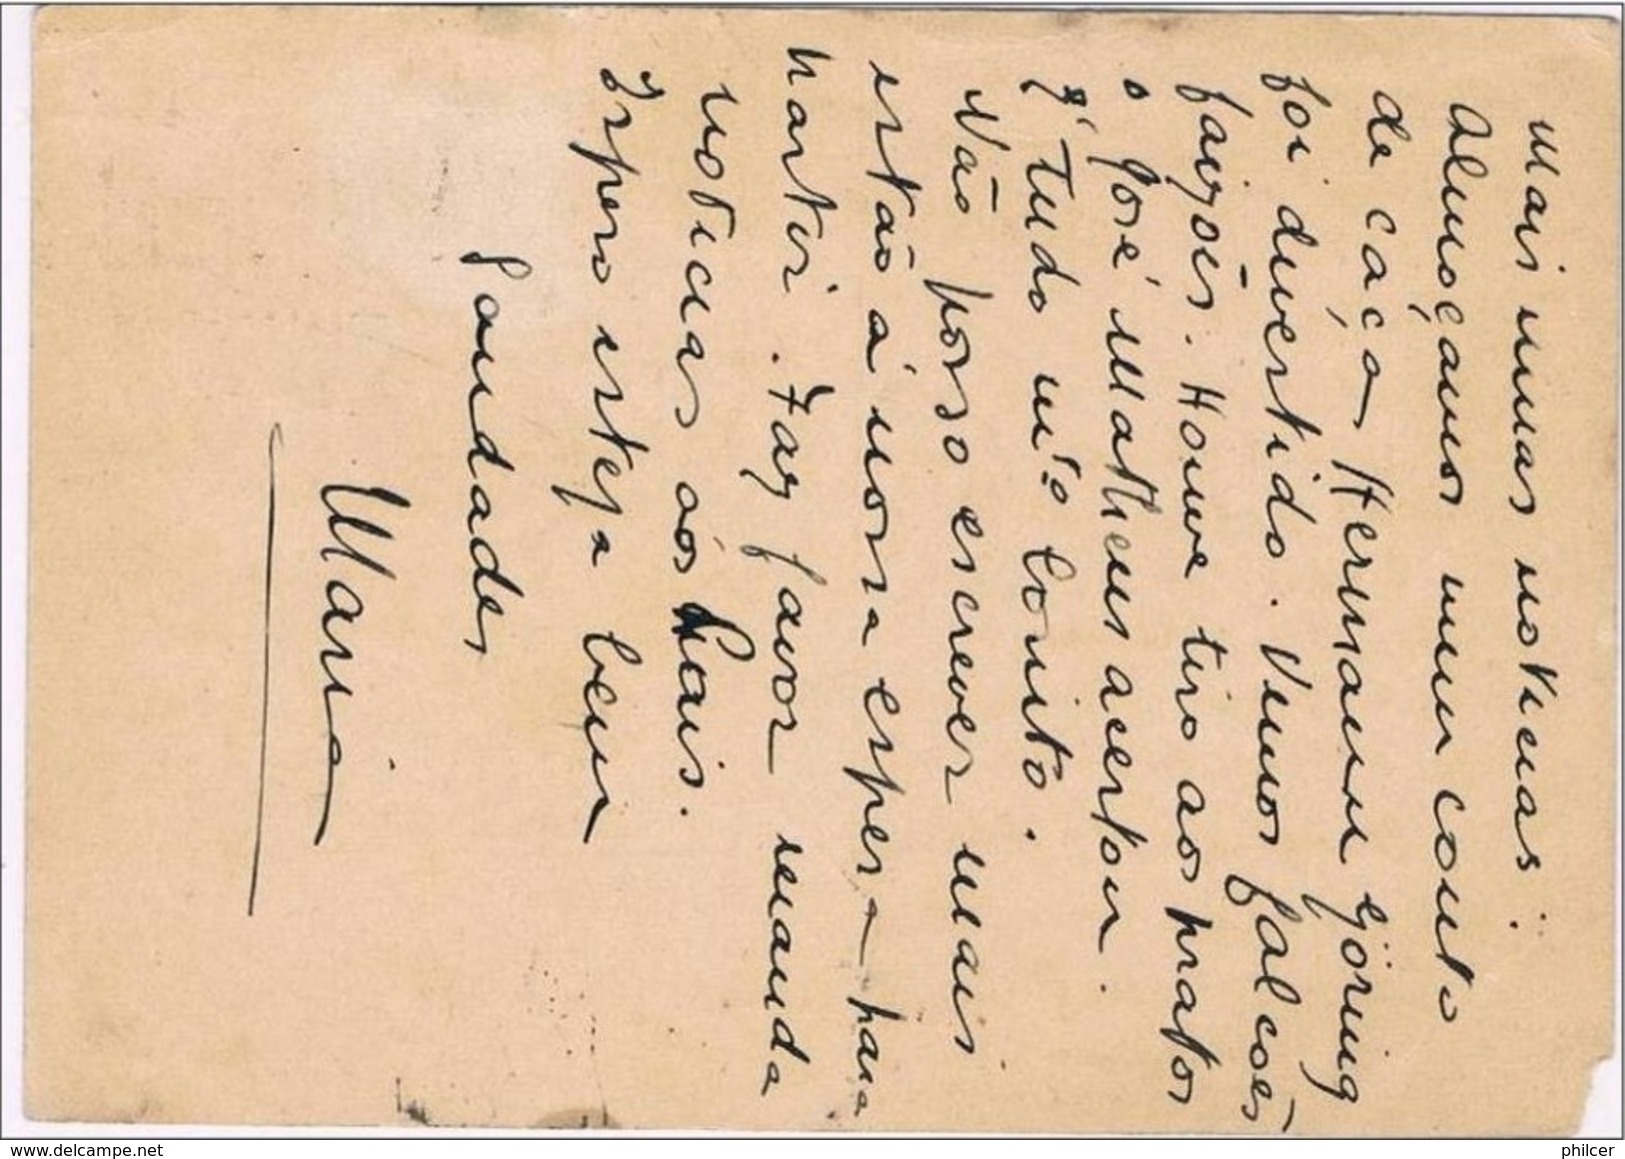 Mais umas noticias:
Almoçamos num couto
de caça Hermann Göring
foi divertido. Vimos falcoēs
faizoēs. Houve tiro aos pratos
o José Matheus acertou.
É tudo mto bonito.
Não posso escrever mais
estão á nossa espera para
partir. Faz favor manda
noticias aós Pais.
Espero esteja bem
Saudades
Maria
philcer
https://www.delcampe.net